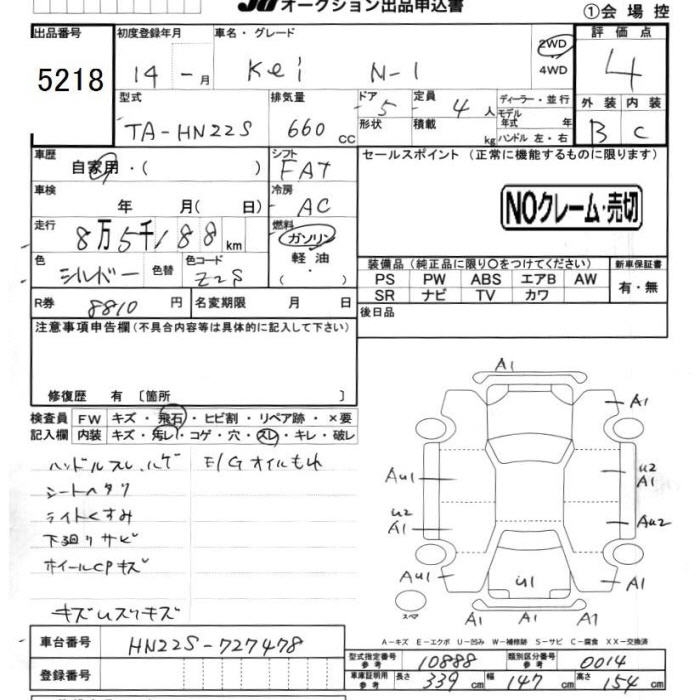 オークション出品申込書
①会場控
出品番号
5218
初度登録年月
14 - 月
車名・グレード
Kei N-1
2WD
4WD
評価点
4
外装 内装
B C
型式
TA-HN22S
排気量
660 cc
ドア 5
形状
定員 4 人
積載 kg
ディーラー・並行
モデル年式 年
ハンドル 左・右
車歴
自家用・( )
シフト
FAT
セールスポイント(正常に機能するものに限ります)
NOクレーム・売切
車検
年 月( 日)
冷房
AC
走行
8万5千188 km
燃料
ガソリン
軽油
( ・ )
色
シルバー
色替
色コード
Z2S
装備品(純正品に限り○をつけてください)
新車保証書
PS PW ABS エアB AW
SR ナビ TV カワ
有・無
R券 8810 円
名変期限 月 日
後日品
注意事項申告欄(不具合内容等は具体的に記入して下さい)
修復歴 有〔箇所 〕
検査員 FW キズ・飛石・ヒビ割・リペア跡・×要
記入欄 内装 キズ・汚レ・コゲ・穴・スレ・キレ・破レ
ハンドルスレ、ハゲ E/Gオイルもれ
シートヘタリ
ライトくすみ
下廻りサビ
ホイールCPキズ
キズUスリキズ
A1
A1
A1
Au1
U2
A1
U2
A1
Au2
Au1
U1
A1
スペア
A1 A1 A1
A-キズ E-エクボ U-凹み W-補修跡 S-サビ C-腐食 XX-交換済
車台番号
HN22S-727478
登録番号
型式指定番号 参考 10888
類別区分番号 参考 0014
車庫証明用 参考 長さ 339 cm 幅 147 cm 高さ 154 cm